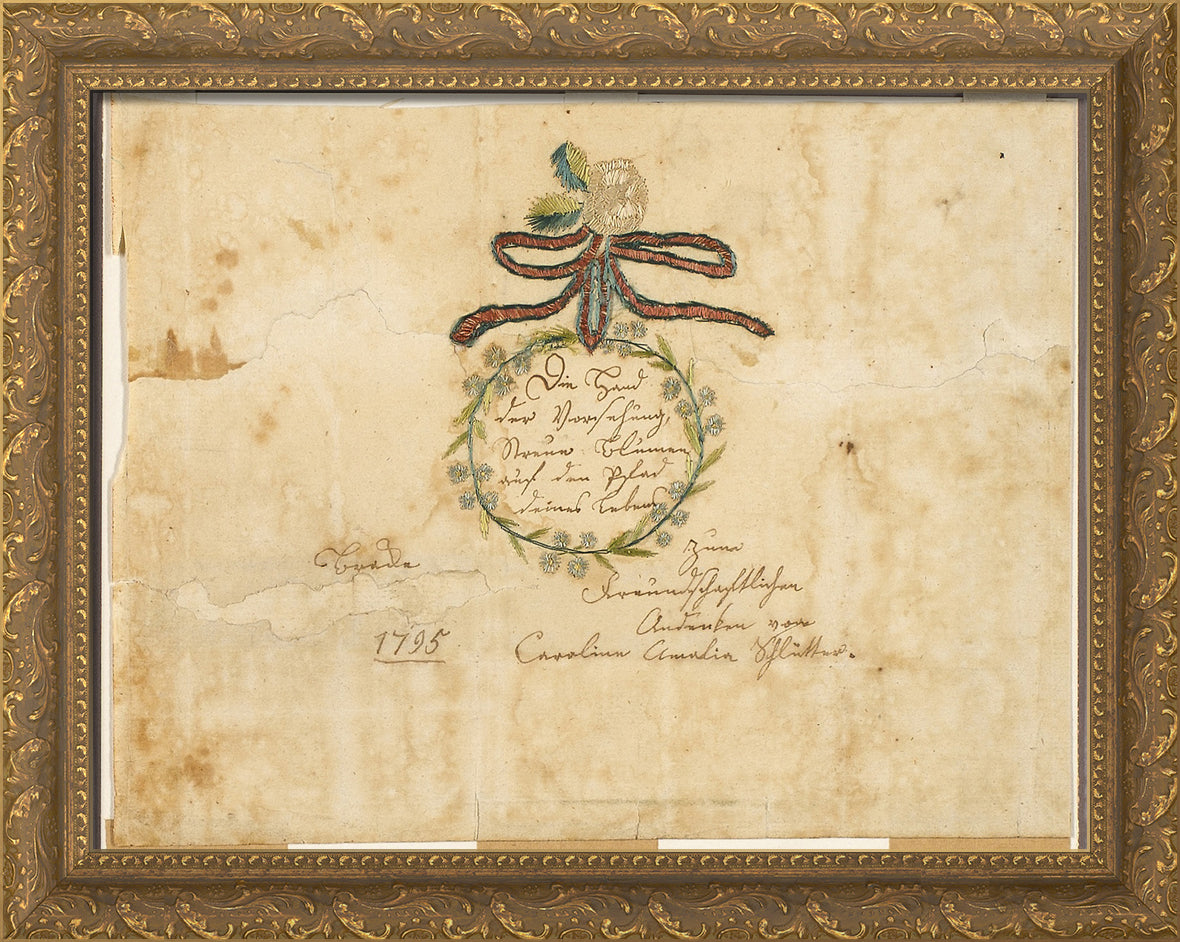 Die Hand
der Vorsehung,
Streue Blumen
auf den Pfad
deines Lebens
Bracke
1795
Zum
Freundschaftlichen
Andenken von
Caroline Amalia Schlütter.